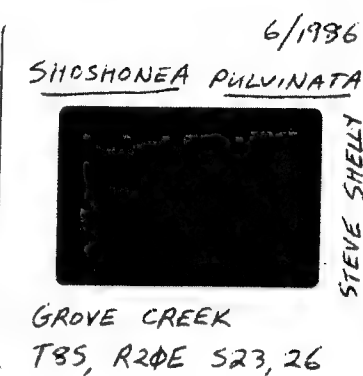 6/1986
SHOSHONEA PULVINATA
STEVE SHELLY
GROVE CREEK
T8S, R2ØE S23, 26